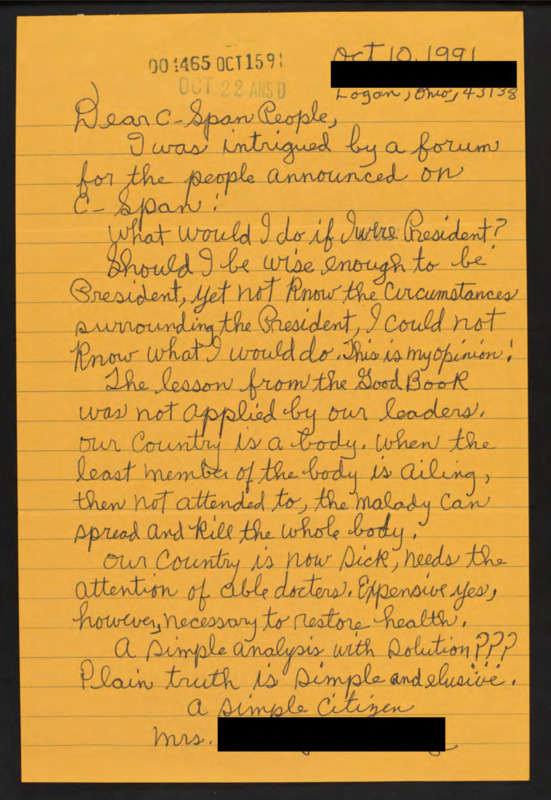 Oct 10, 1991
001465 OCT 15 91
OCT 22 ANS'D
Logan, Ohio, 43138
Dear C-Span People,
I was intrigued by a forum
for the people announced on
C-Span!
What would I do if I were President?
Should I be wise enough to be
President, yet not know the circumstances
surrounding the President, I could not
know what I would do. This is my opinion!
The lesson from the Good Book
was not applied by our leaders.
Our Country is a body. When the
least member of the body is ailing,
then not attended to, the malady can
spread and kill the whole body.
Our Country is now sick, needs the
attention of able docters. Expensive yes,
however, necessary to restore health.
A simple analysis with solution???
Plain truth is simple and elusive.
A simple Citizen
Mrs.